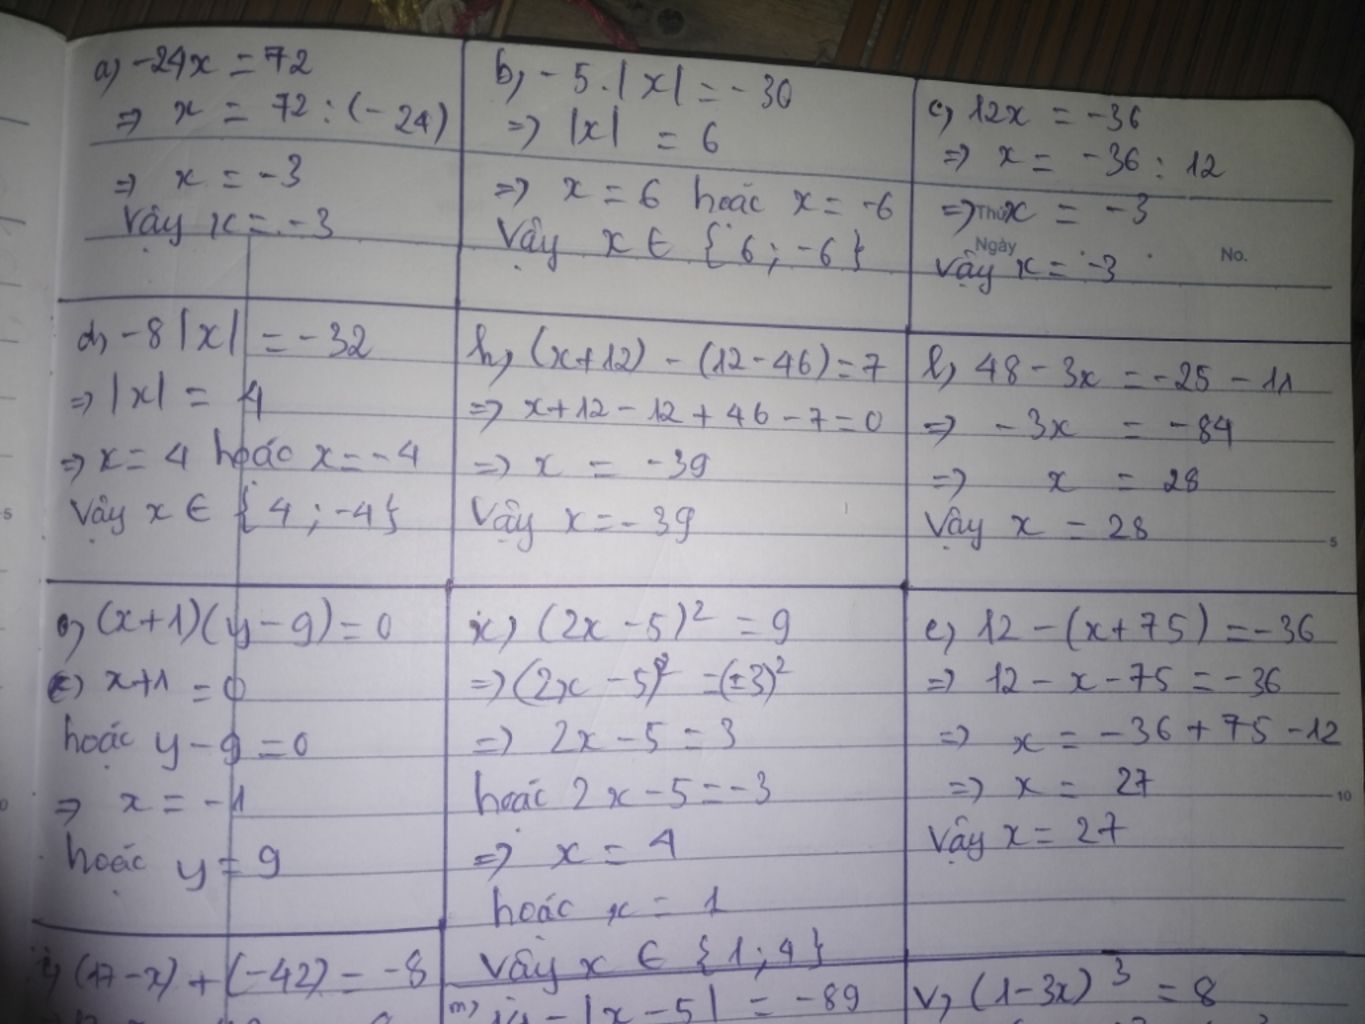 a, -24x = 72
=> x = 72 : (-24)
=> x = -3
Vậy x = -3
b, -5.|x| = -30
=> |x| = 6
=> x = 6 hoặc x = -6
Vậy x ∈ {6; -6}
c, 12x = -36
=> x = -36 : 12
=> x = -3
Thứ
Ngày
No.
Vậy x = -3
d, -8|x| = -32
=> |x| = 4
=> x = 4 hoặc x = -4
Vậy x ∈ {4; -4}
h, (x+12) - (12-46) = 7
=> x+12-12+46-7=0
=> x = -39
Vậy x = -39
l, 48 - 3x = -25 - 11
=> -3x = -84
=> x = 28
Vậy x = 28
5
5
o, (x+1)(y-9) = 0
x+1 = 0
hoặc y-9 = 0
=> x = -1
hoặc y = 9
x) (2x-5)² = 9
=> (2x-5)² = (±3)²
=> 2x-5 = 3
hoặc 2x-5 = -3
=> x = 4
hoặc x = 1
Vậy x ∈ {1; 4}
e, 12 - (x+75) = -36
=> 12 - x - 75 = -36
=> x = -36 + 75 - 12
=> x = 27
10
Vậy x = 27
(17-x) + (-42) = -8
m) - |x-5| = -89
v, (1-3x)³ = 8